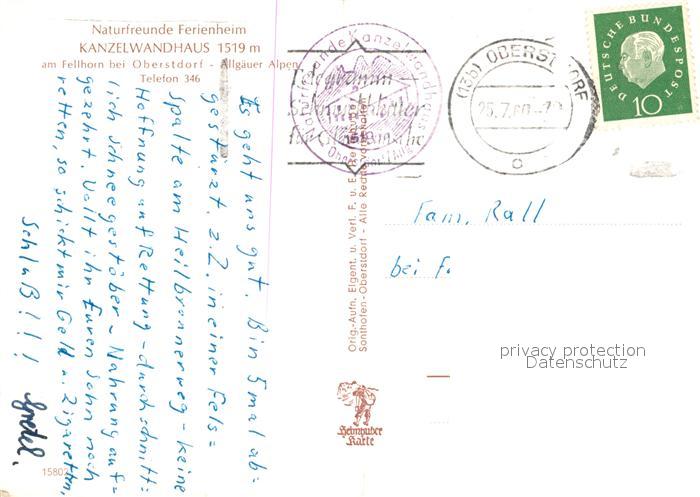 Naturfreunde Ferienheim
KANZELWANDHAUS 1519 m
am Fellhorn bei Oberstdorf - Allgäuer Alpen
Telefon 346
Es geht uns gut. Bin 5mal ab=
gestürzt. z.Z. in einer Fels=
spalte am Heilbronnerweg - keine
Hoffnung auf Rettung - durchschnitt=
lich Schneegestöber - Nahrung auf=
gezehrt. Wollt ihr Euren Sohn noch
retten, so schickt mir Geld u. Zigaretten,
Schluß!!!
15802
Orig.-Aufn. Eigent. u. Verl. F. u. E.
Sonthofen-Oberstdorf - Alle Rechte vorbehalten
Heimhuber
Karte
Naturfreunde Kanzelwandhaus
(13b) OBERSTDORF
25.7.60
c
DEUTSCHE BUNDESPOST
10
Fam. Rall
bei F.
privacy protection
Datenschutz